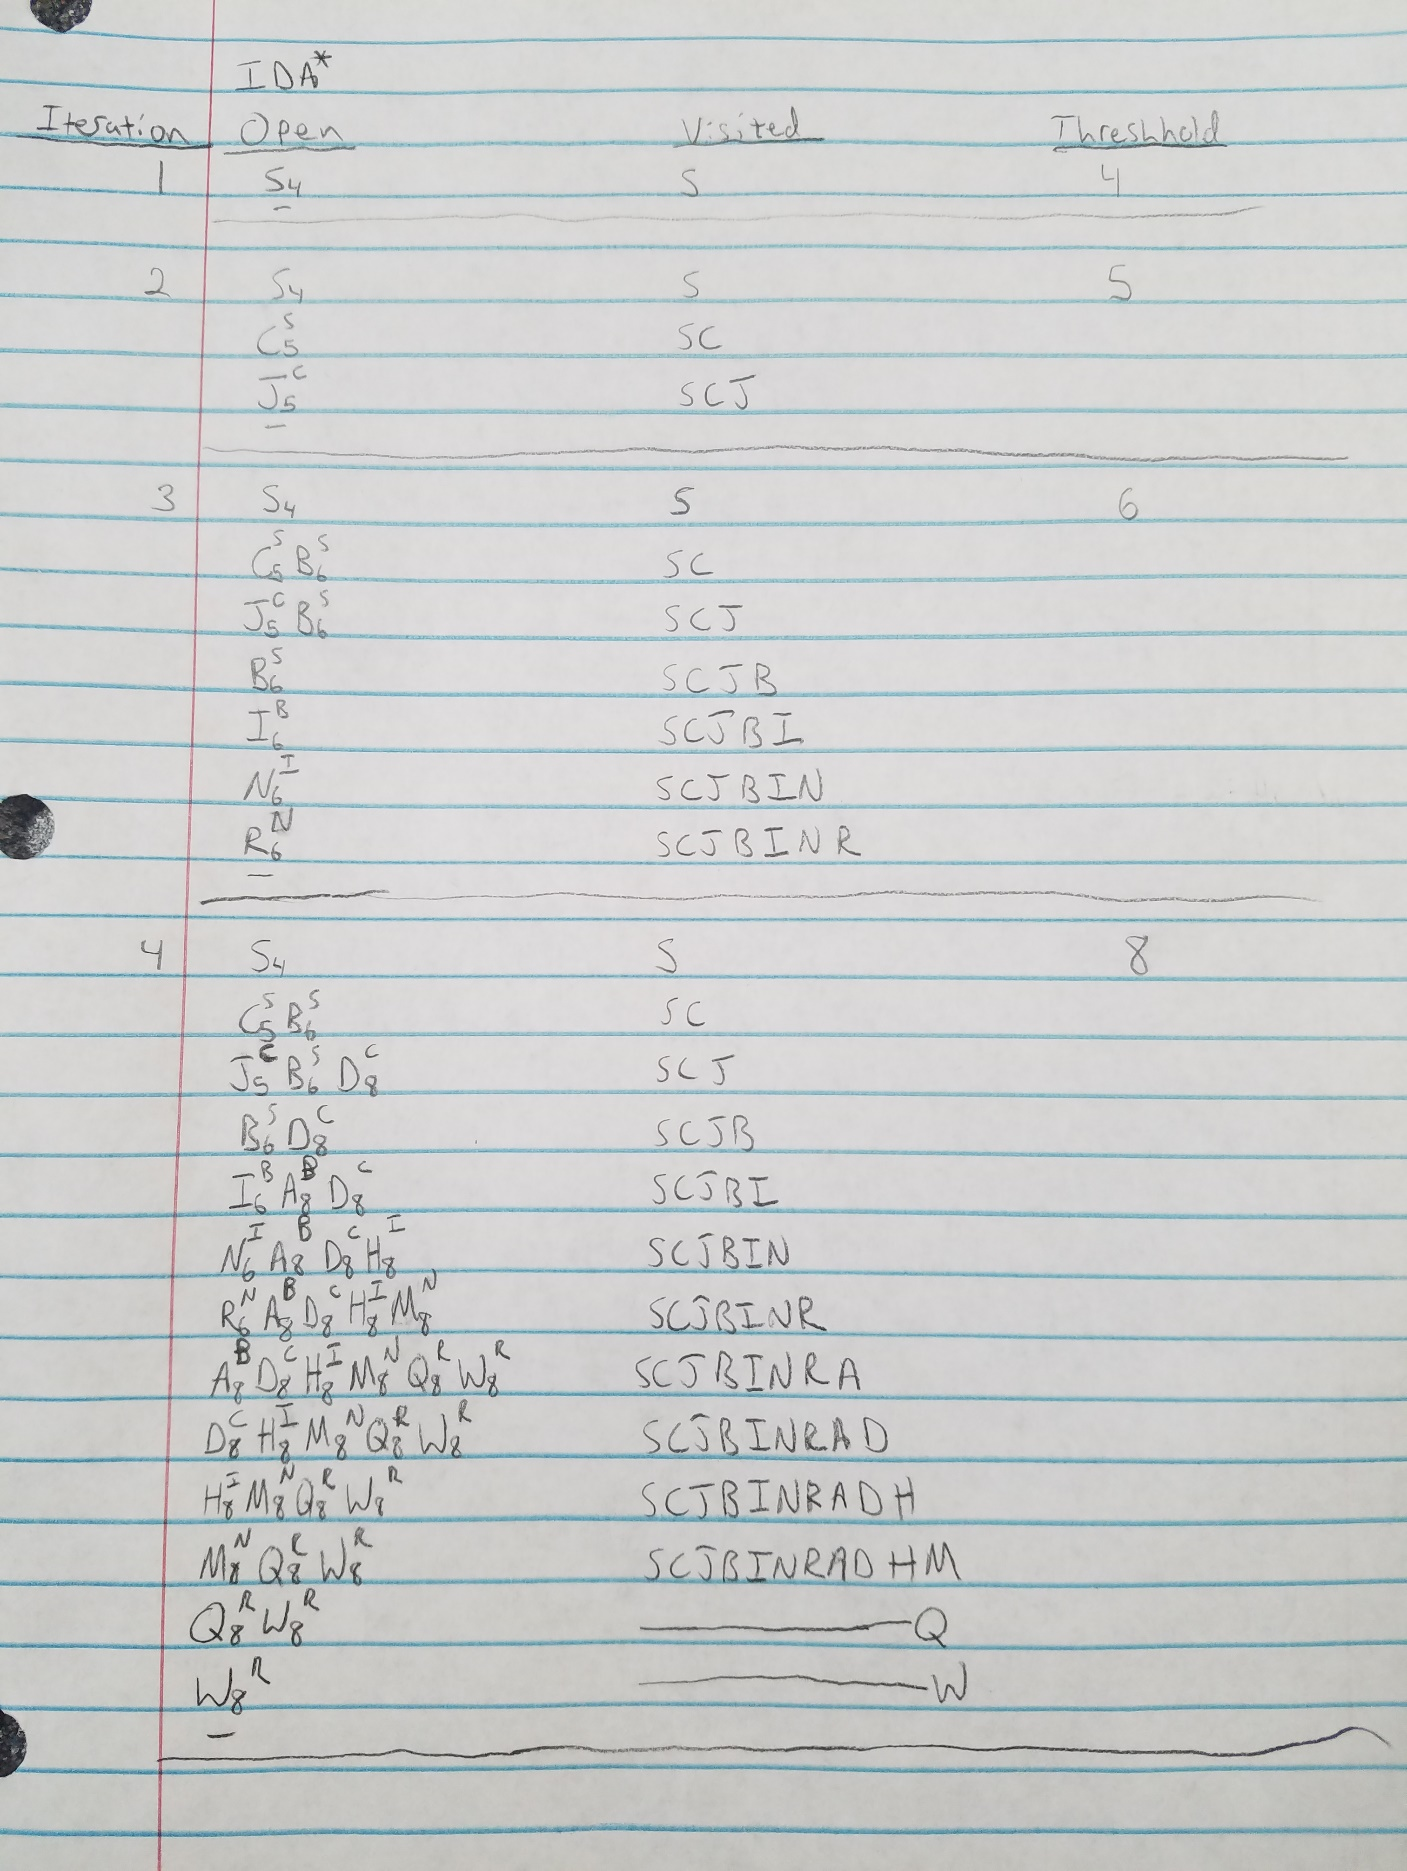 IDA*
Iteration Open Visited Threshhold
1 S₄ S 4
2 S₄ S 5
C₅ˢ SC
J₅ᶜ SCJ
3 S₄ S 6
C₅ˢ B₆ˢ SC
J₅ᶜ B₆ˢ SCJ
B₆ˢ SCJB
I₆ᴮ SCJBI
N₆ᴵ SCJBIN
R₆ᴺ SCJBINR
4 S₄ S 8
C₅ˢ B₆ˢ SC
J₅ᶜ B₆ˢ D₈ᶜ SCJ
B₆ˢ D₈ᶜ SCJB
I₆ᴮ A₈ᴮ D₈ᶜ SCJBI
N₆ᴵ A₈ᴮ D₈ᶜ H₈ᴵ SCJBIN
R₆ᴺ A₈ᴮ D₈ᶜ H₈ᴵ M₈ᴺ SCJBINR
A₈ᴮ D₈ᶜ H₈ᴵ M₈ᴺ Q₈ᴿ W₈ᴿ SCJBINRA
D₈ᶜ H₈ᴵ M₈ᴺ Q₈ᴿ W₈ᴿ SCJBINRAD
H₈ᴵ M₈ᴺ Q₈ᴿ W₈ᴿ SCJBINRADH
M₈ᴺ Q₈ᴿ W₈ᴿ SCJBINRADHM
Q₈ᴿ W₈ᴿ ————Q
W₈ᴿ ————W